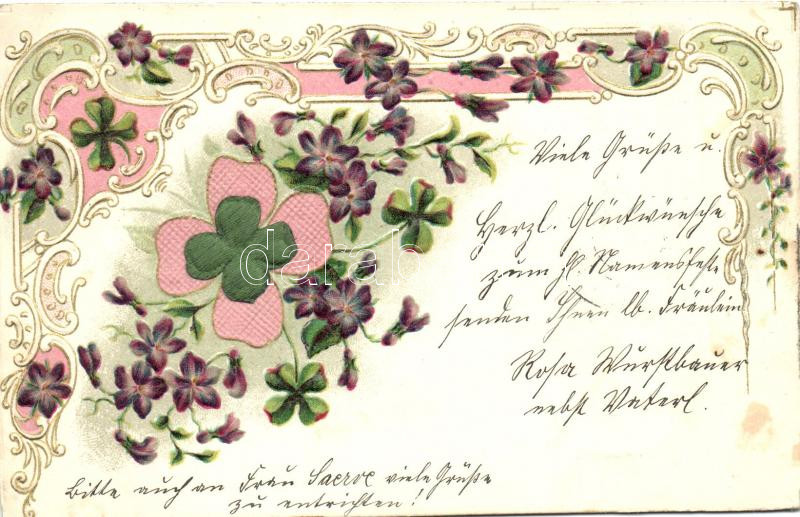 Viele Grüße u.
Herzl. Glückwünsche
zum hl. Namensfeste
senden Ihnen lb. Fräulein
Rosa Wurstbauer
nebst Vaterl.
Bitte auch an Frau viele Grüße
zu entrichten!
darab